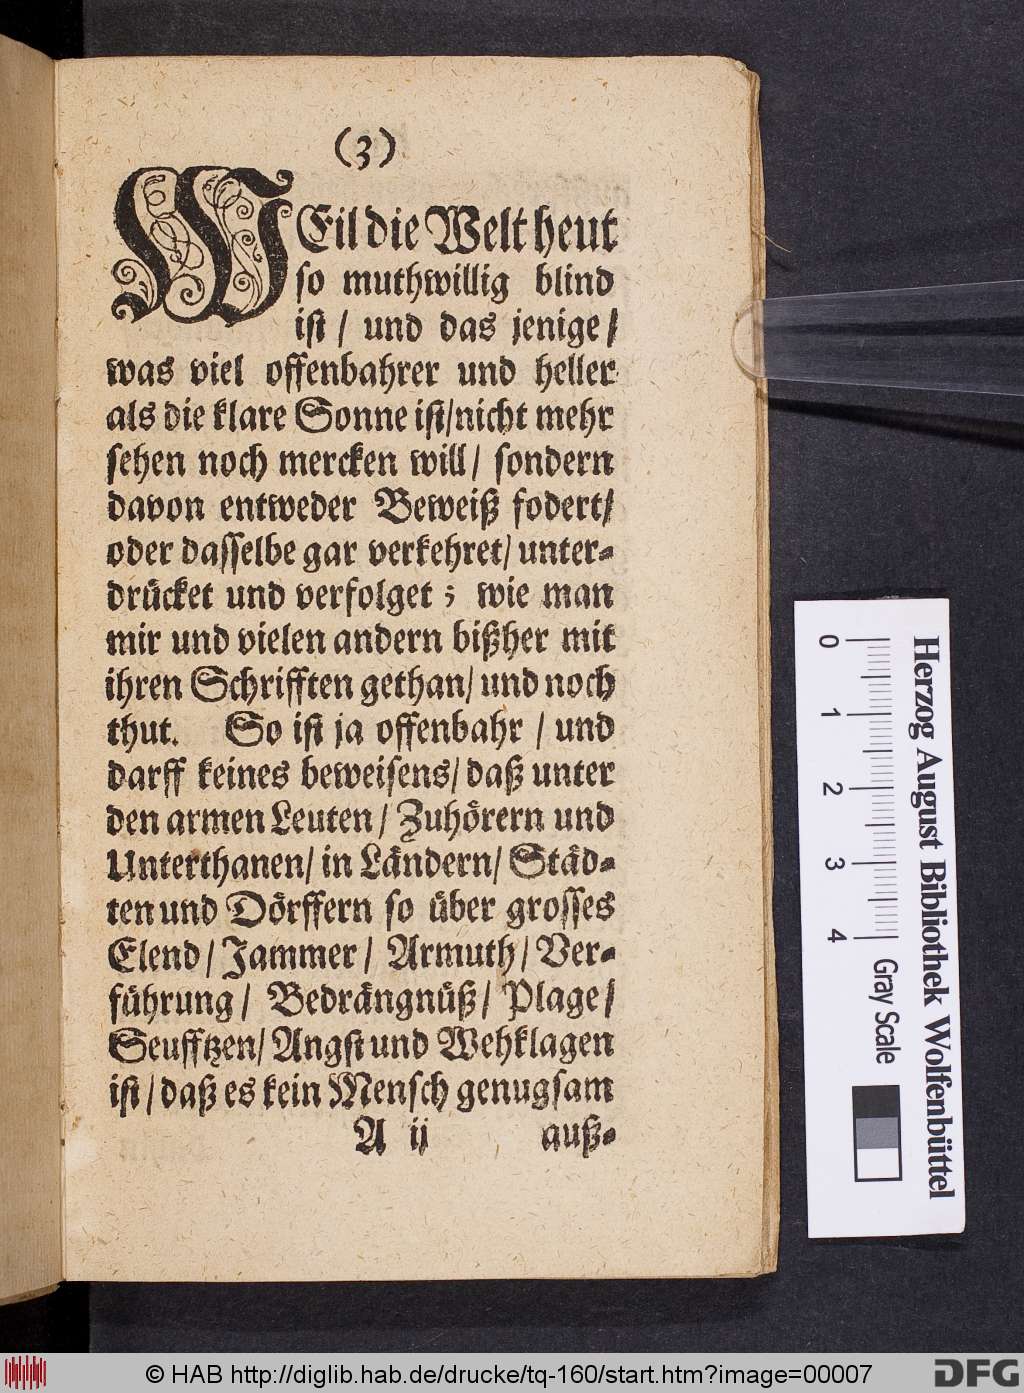 (3)
WEil die Welt heut
so muthwillig blind
ist / und das jenige /
was viel offenbahrer und heller
als die klare Sonne ist/nicht mehr
sehen noch mercken will / sondern
davon entweder Beweiß fodert/
oder dasselbe gar verkehret/ unter-
drücket und verfolget ; wie man
mir und vielen andern bißher mit
ihren Schrifften gethan/ und noch
thut. So ist ja offenbahr / und
darff keines beweisens/ daß unter
den armen Leuten / Zuhörern und
Unterthanen/ in Ländern/ Städ-
ten und Dörffern so über grosses
Elend / Jammer / Armuth/ Ver-
führung / Bedrängnüß/ Plage/
Seufftzen/ Angst und Wehklagen
ist / daß es kein Mensch genugsam
A ij auß-
Herzog August Bibliothek Wolfenbüttel
0 1 2 3 4 Gray Scale
© HAB http://diglib.hab.de/drucke/tq-160/start.htm?image=00007
DFG